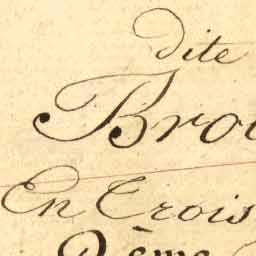 dite
Bro
En Trois
2ème